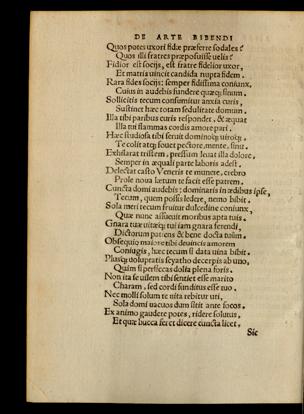 DE ARTE BIBENDI
Quos potes uxori fidæ præferre sodales?
Quos illi fratres præposuisse uelis?
Fidior est socijs, est fratre fidelior uxor,
Et matris uincit candida nupta fidem.
Rara fides socijs: semper fidissima coniunx,
Cuius in audebis fundere quæq; sinum.
Sollicitis tecum consumitur anxia curis,
Sustinet hæc totam sedulitate domum.
Illa tibi paribus curis respondet, & æquat
Illa tui flammas cordis amore pari.
Hæc studiosa tibi seruit dominoq; uiroq;
Te colit atq; fouet pectore, mente, sinu.
Exhilarat tristem, pressum leuat illa dolore,
Semper in æquali parte laboris adest.
Delectat casto Veneris te munere, crebro
Prole noua lætum te facit esse patrem.
Cuncta domi audebis; dominaris in ædibus ipse,
Tecum, quem possis ledere, nemo bibit.
Sola meri tecum fruitur dulcedine coniunx,
Quæ nunc assueuit moribus apta tuis.
Gnara tuæ uitæq; tui iam gnara ferendi,
Dictorum patiens & bene docta tuum.
Obsequio maiore tibi deuincis amorem
Coniugis, hæc tecum si data uina bibit.
Plusq; uoluptatis scyatho decerpis ab uno,
Quàm si perficcas dolia plena foris.
Non ita se uilem tibi sentiet esse marito
Charam, sed cordi funditus esse tuo.
Nec molli solum te uita rebitur uti,
Sola domi uacuos dum sitit ante focos.
Ex animo gaudere potes, ridere solutus,
Et quæ bucca feret dicere cuncta licet,
Sic